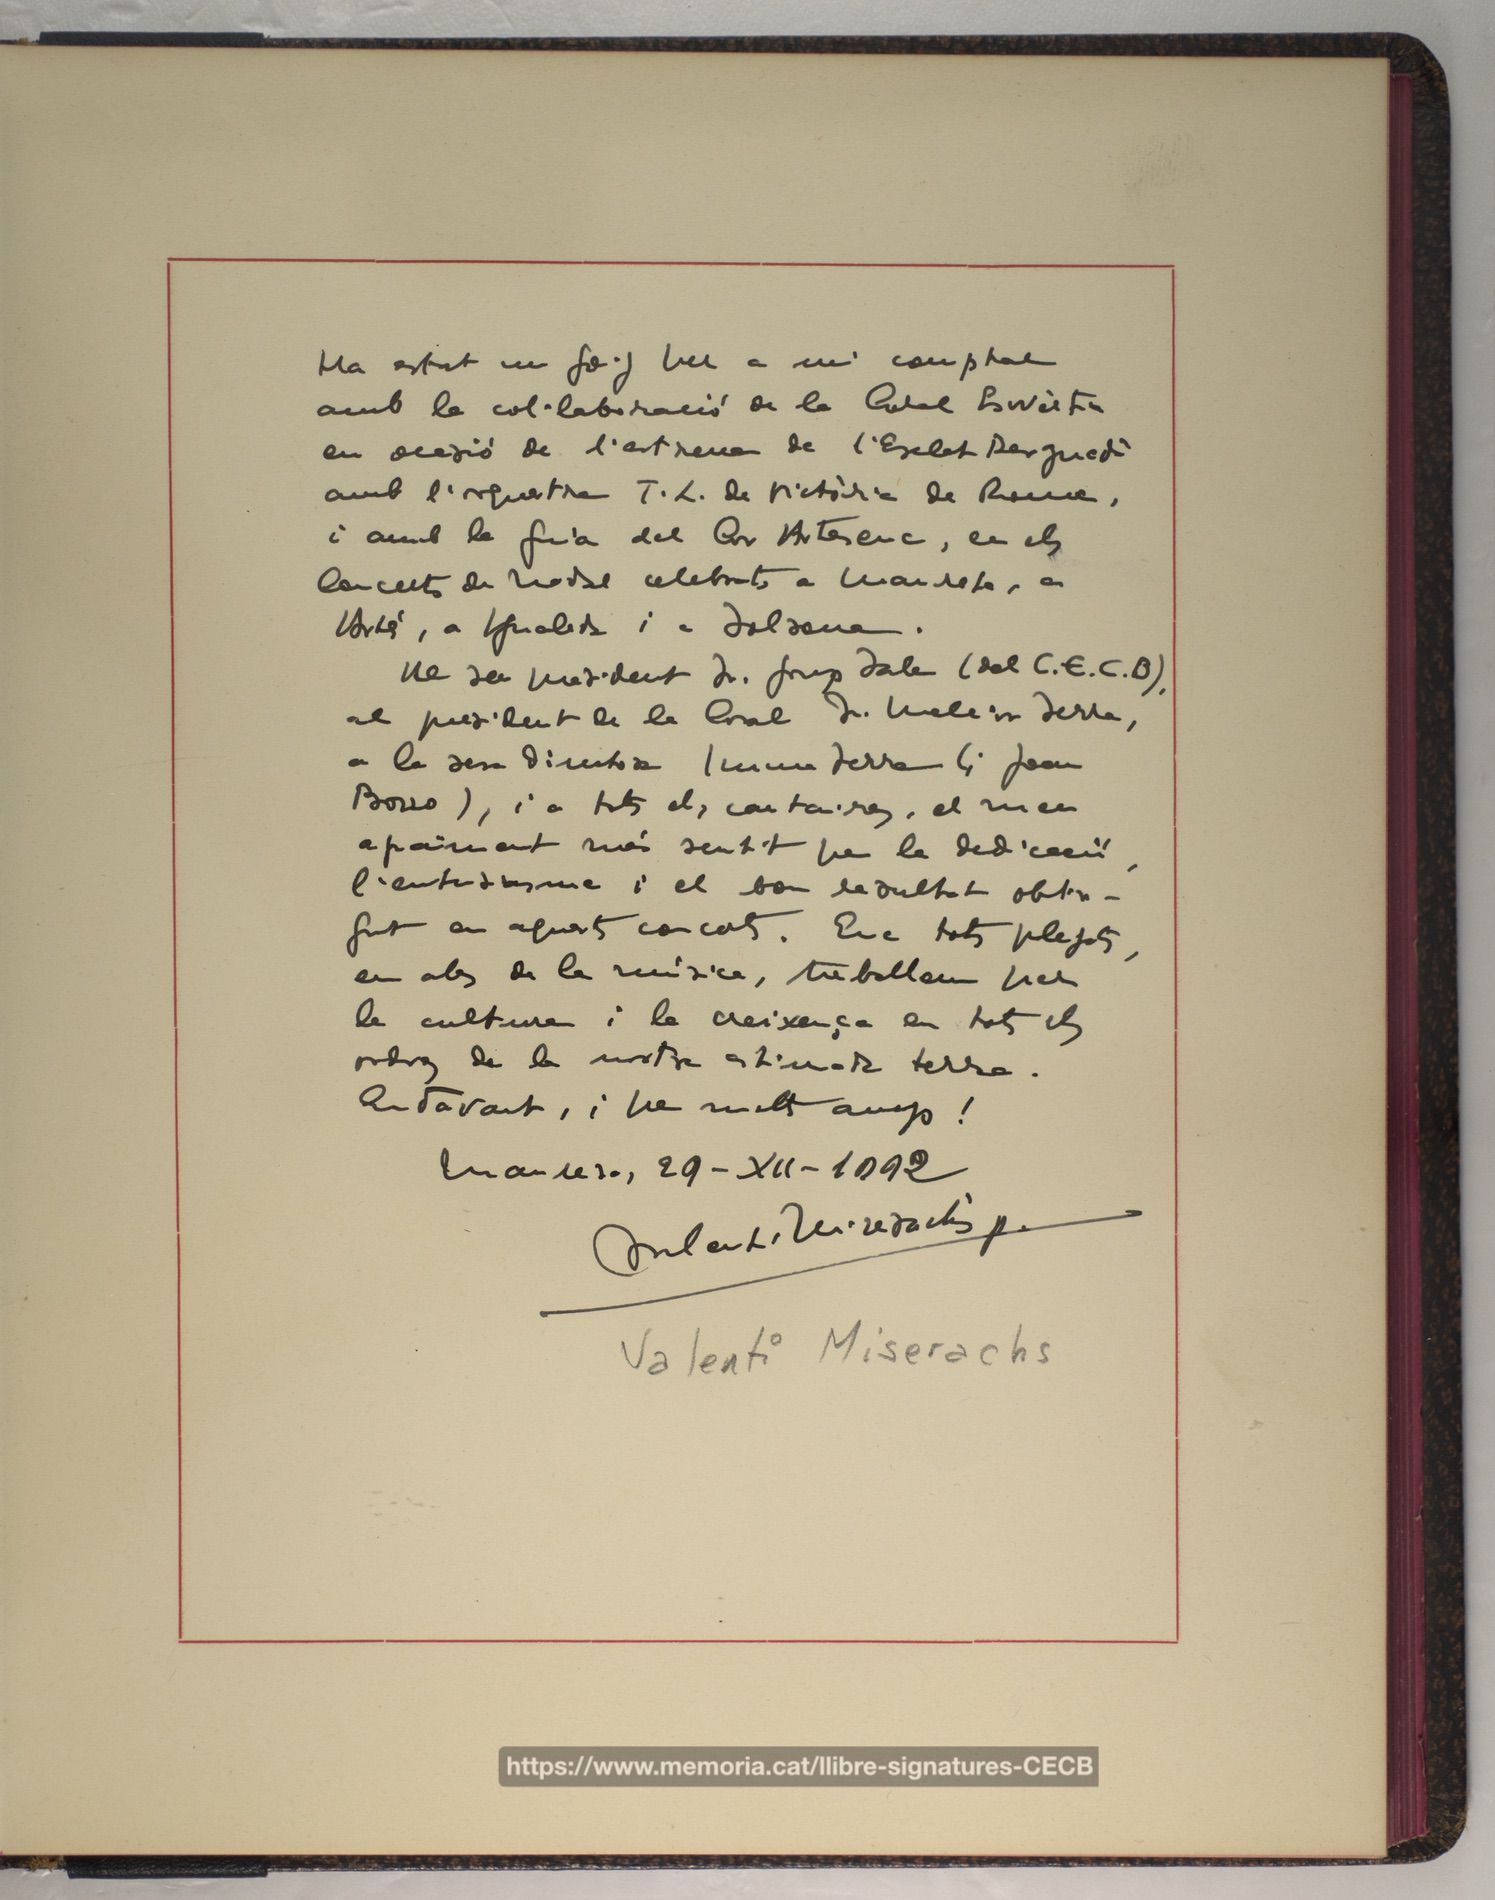 Ha estat un goig per a mi comptar
amb la col·laboració de la Coral Escriny
en ocasió de l'estrena de l'Esclat Berguedà
amb l'orquestra T.L. de Victòria de Roma,
i amb la guia del Cor Artesenc, en els
Concerts de Nadal celebrats a Manresa, a
Artés, a Igualada i a Solsona.
Al seu president Sr. Josep Sala (del C.E.C.B),
al president de la Coral Sr. Serra,
a la seva directora Imma Serra (i Joan
), i a tots els cantaires, el meu
agraïment més sentit per la dedicació,
l'entusiasme i el bon resultat obtin-
gut en aquests concerts. Que tots plegats,
en ales de la música, treballem per
la cultura i la creixença en tots els
ordres de la nostra estimada terra.
Endavant, i per molts anys!
Manresa, 29-XII-1992
Valentí Miserachs p.
Valentí Miserachs
https://www.memoria.cat/llibre-signatures-CECB